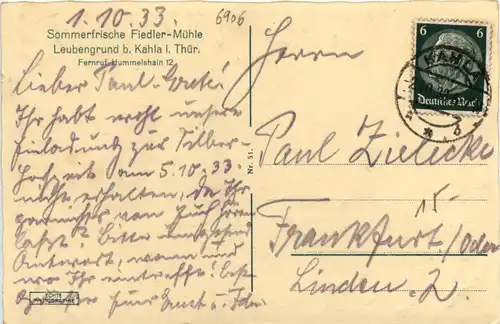 1.10.33.
6906
Sommerfrische Fiedler-Mühle
Leubengrund b. Kahla i. Thür.
Fernruf Hummelshain 12
Lieber Paul-
Ihr habt wohl unsere
Einladung zur Silber-
Hochzeit am 5.10.33.
nicht erhalten, da Ihr
garnichts von Euch hören
laßt? Bitte umgehend
Antwort, wann und
wo Ihr eintrefft!
Euer Ernst u.
ECHTE PHOTOGRAPHIE
Nr. 51.
6 6
Deutsches Reich
KAHLA
Herrn
Paul Zielecke
15-
Frankfurt/Oder
Linden 2.